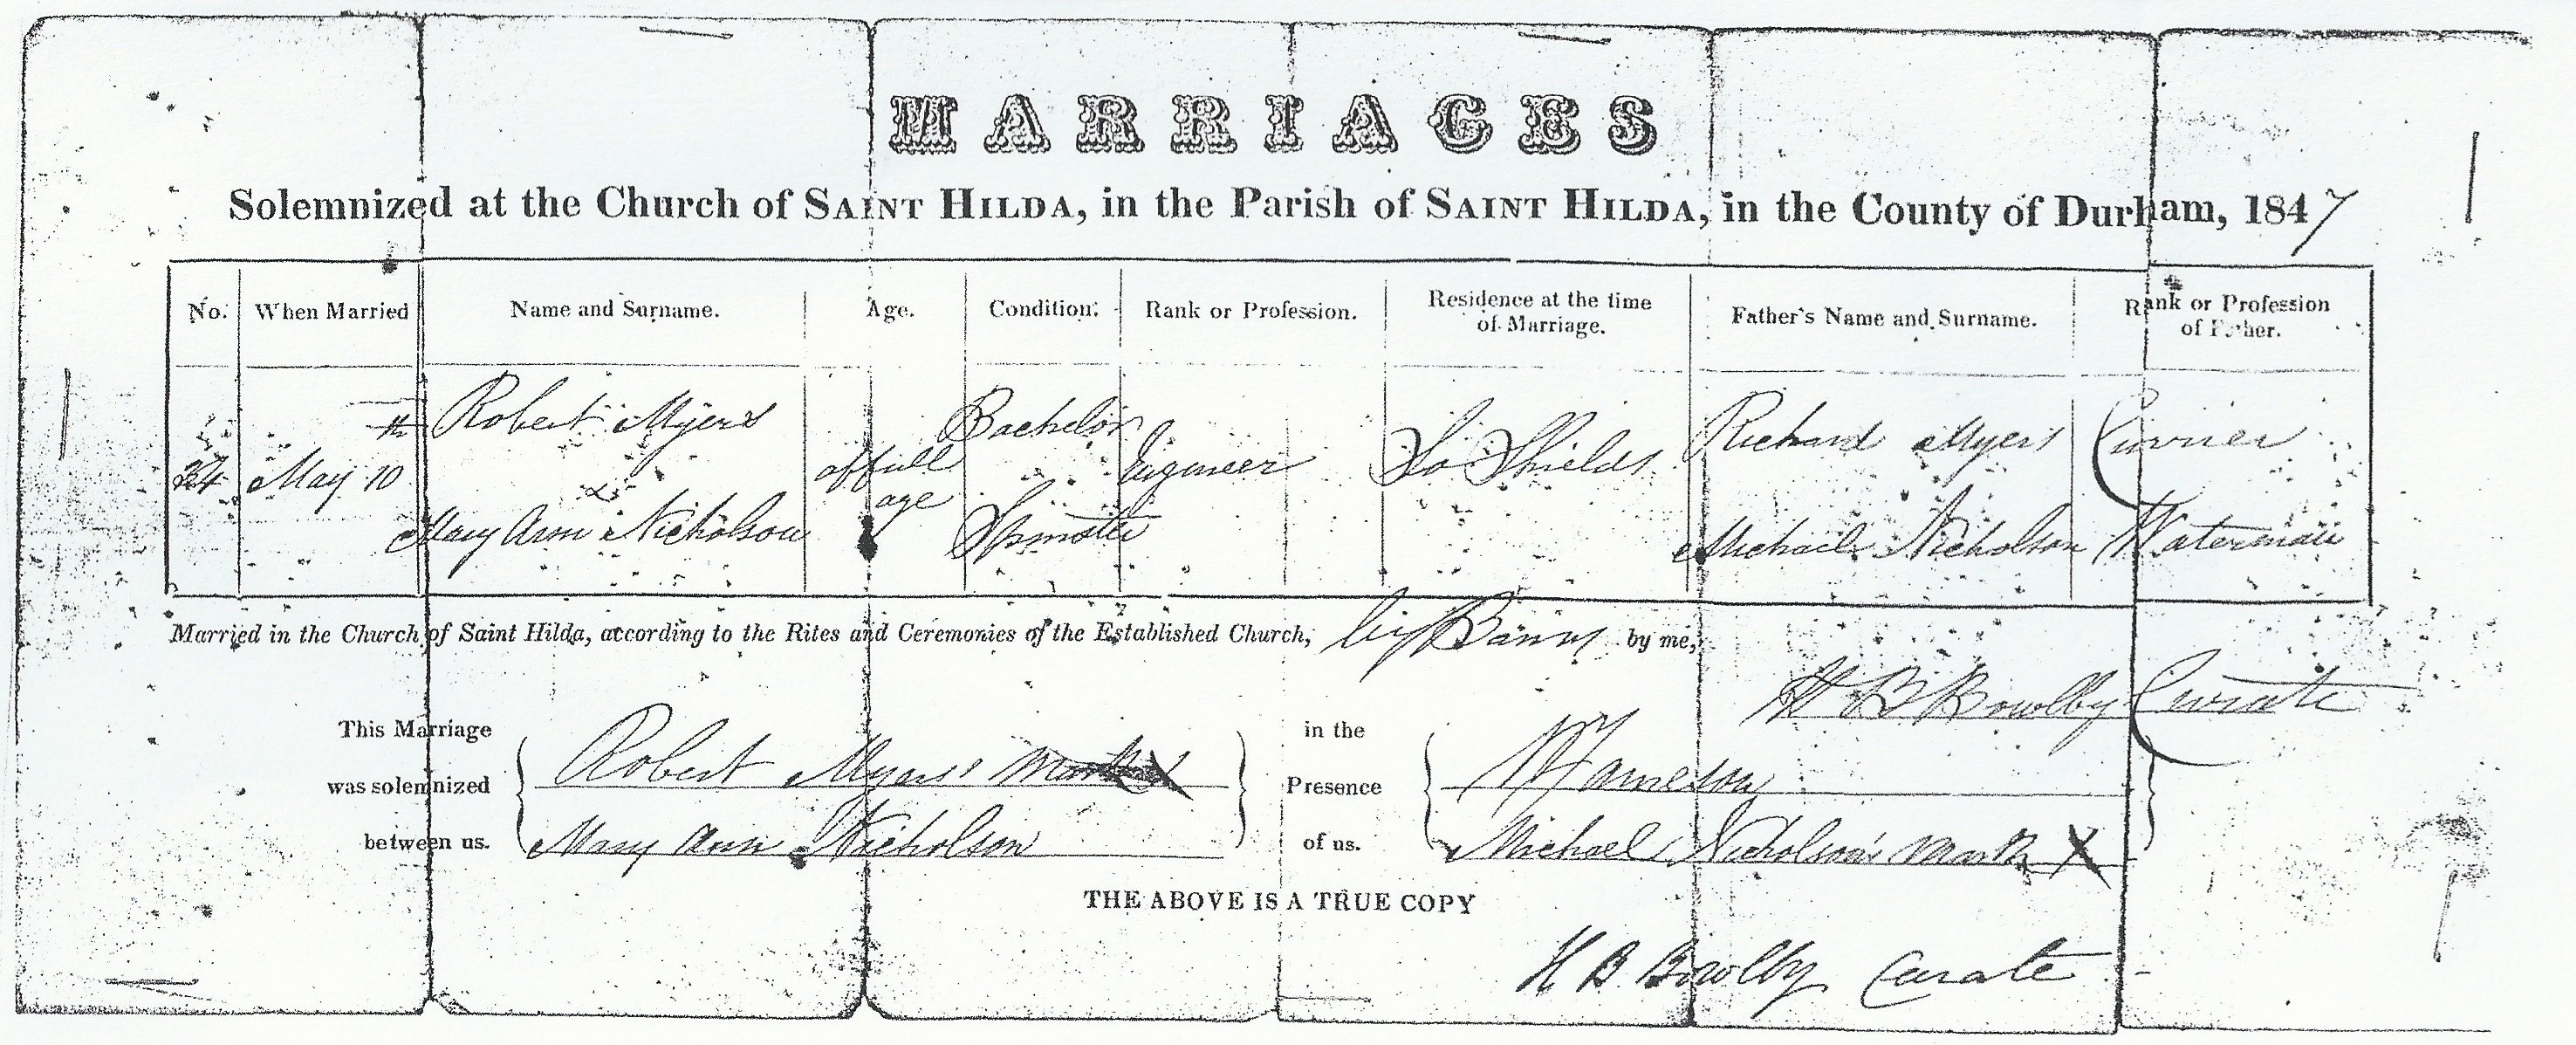 MARRIAGES
Solemnized at the Church of SAINT HILDA, in the Parish of SAINT HILDA, in the County of Durham, 1847
No. When Married Name and Surname. Age. Condition. Rank or Profession. Residence at the time of Marriage. Father's Name and Surname. Rank or Profession of Father.
th Robert Myers Bachelor Richard Myers Currier
May 10 & of full age Engineer So Shields
Mary Ann Nicholson Spinster Michael Nicholson Waterman
Married in the Church of Saint Hilda, according to the Rites and Ceremonies of the Established Church, by Banns by me,
H B Bowlby Curate
This Marriage was solemnized between us. Robert Myers's Mark X in the Presence of us. Jameson
Mary Ann Nicholson Michael Nicholson's Mark X
THE ABOVE IS A TRUE COPY
H B Bowlby Curate